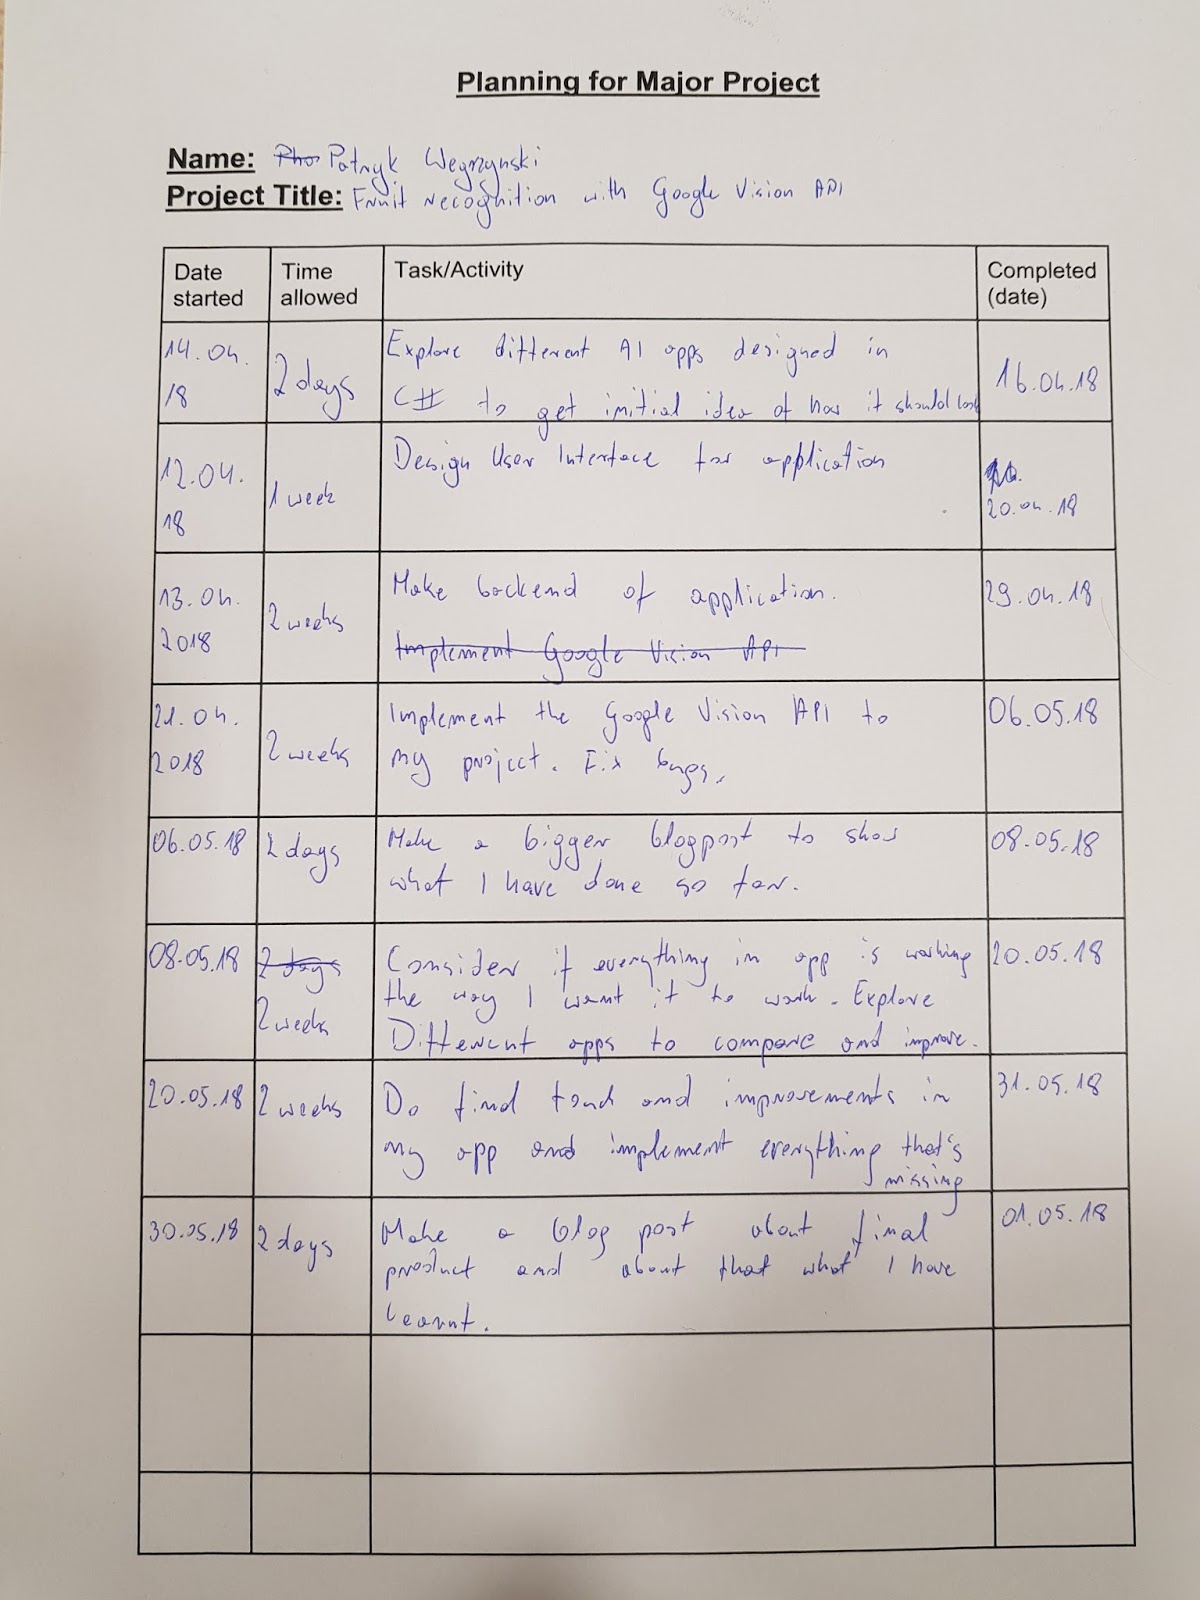 Planning for Major Project
Name: Pho Patryk Wegrzynski
Project Title: Fruit recognition with Google Vision API
Date started
Time allowed
Task/Activity
Completed (date)
14.04.
18
2 days
Explore different AI apps designed in
C# to get initial idea of how it should look
16.04.18
12.04.
18
1 week
Design User Interface for application
20.04.18
13.04.
2018
2 weeks
Make backend of application.
Implement Google Vision API
29.04.18
21.04.
2018
2 weeks
Implement the Google Vision API to
my project. Fix bugs.
06.05.18
06.05.18
2 days
Make a bigger blogpost to show
what I have done so far.
08.05.18
08.05.18
2 days
2 weeks
Consider if everything in app is working
the way I want it to work. Explore
Different apps to compare and improve.
20.05.18
20.05.18
2 weeks
Do final touch and improvements in
my app and implement everything that's
missing
31.05.18
30.05.18
2 days
Make a blog post about final
product and about that what I have
learnt.
01.05.18